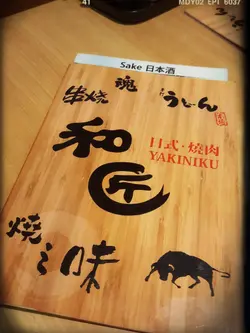 41
MDY02 EPT 6037
Sake 日本酒
串焼
魂
うどん
和
匠
日式·燒肉
YAKINIKU
燒之味